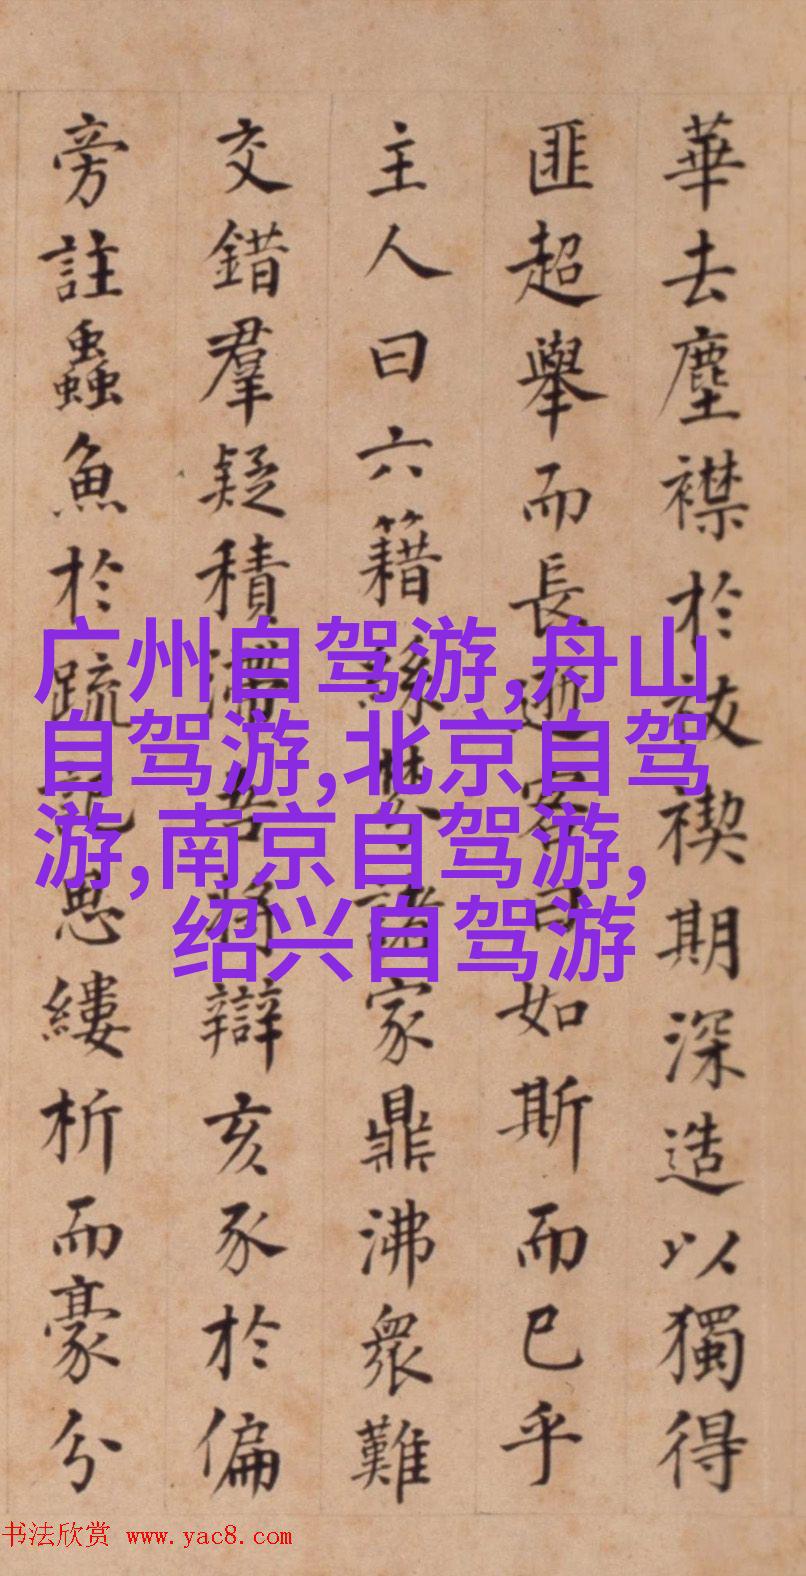 華去塵襟於祓禊期深造以獨得
匪超舉而長逝客曰如斯而已乎
主人曰六籍絲棼諸家鼎沸眾難
交錯羣疑積滯吾將辯亥豕於偏
旁註蟲魚於疏記思縷析而豪分
广州自驾游,舟山
自驾游,北京自驾
游,南京自驾游,
绍兴自驾游
书法欣赏 www.yac8.com